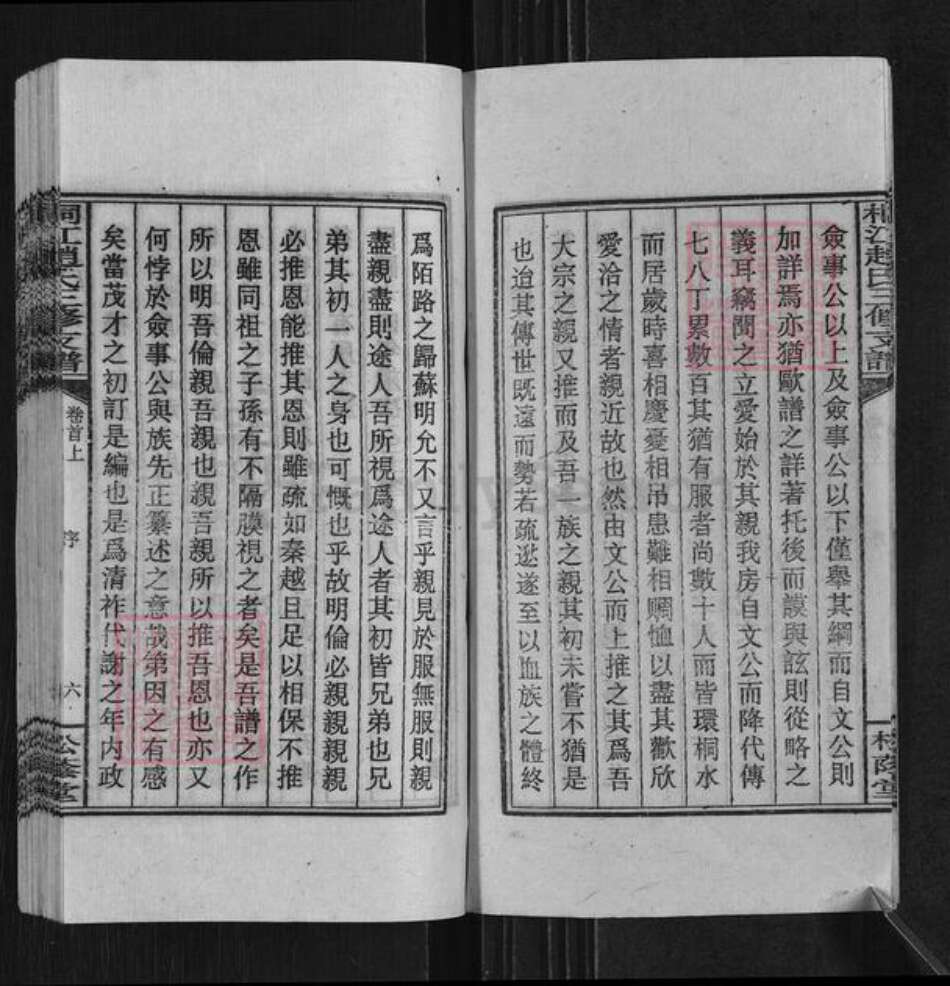 桐江趙氏三修支譜
僉事公以上及僉事公以下僅舉其綱而自文公則
加詳焉亦猶歐譜之詳著托後而謨與詃則從略之
義耳竊聞之立愛始於其親我房自文公而降代傳
七八丁累數百其猶有服者尚數十人而皆環桐水
而居歲時喜相慶憂相吊患難相賙恤以盡其歡欣
愛洽之情者親近故也然由文公而上推之其爲吾
大宗之親又推而及吾一族之親其初未嘗不猶是
也迨其傳世既遠而勢若疏逖遂至以血族之體終
爲陌路之歸蘇明允不又言乎親見於服無服則親
盡親盡則途人吾所視爲途人者其初皆兄弟也兄
弟其初一人之身也可慨也乎故明倫必親親親親
必推恩能推其恩則雖疏如秦越且足以相保不推
恩雖同祖之子孫有不隔膜視之者矣是吾譜之作
所以明吾倫親吾親也親吾親所以推吾恩也亦又
何悖於僉事公與族先正纂述之意哉第因之有感
矣當茂才之初訂是編也是爲清祚代謝之年内政
桐江趙氏三修支譜
卷首上
序
六